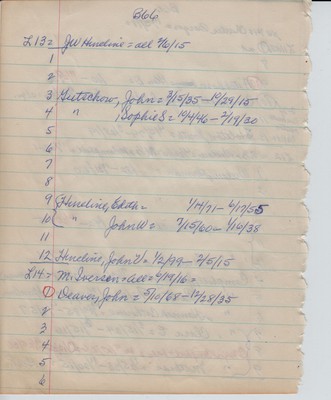 B66
L13 = JW Henline = all 7/6/15
1
2
3 Gutschow, John = 3/15/35 - 10/29/15
4 " , Sophie S = 10/4/46 - 7/19/30
5
6
7
8
9 Henline, Edith = 1/17/71 - 6/17/55
10 " John W = 7/15/60 - 1/16/38
11
12 Henline, John V = 1/2/99 - 3/5/15
L14 = M. Iverson = all = 2/19/16 =
1 Deaver, John = 5/10/68 - 12/28/35
2
3
4
5
6